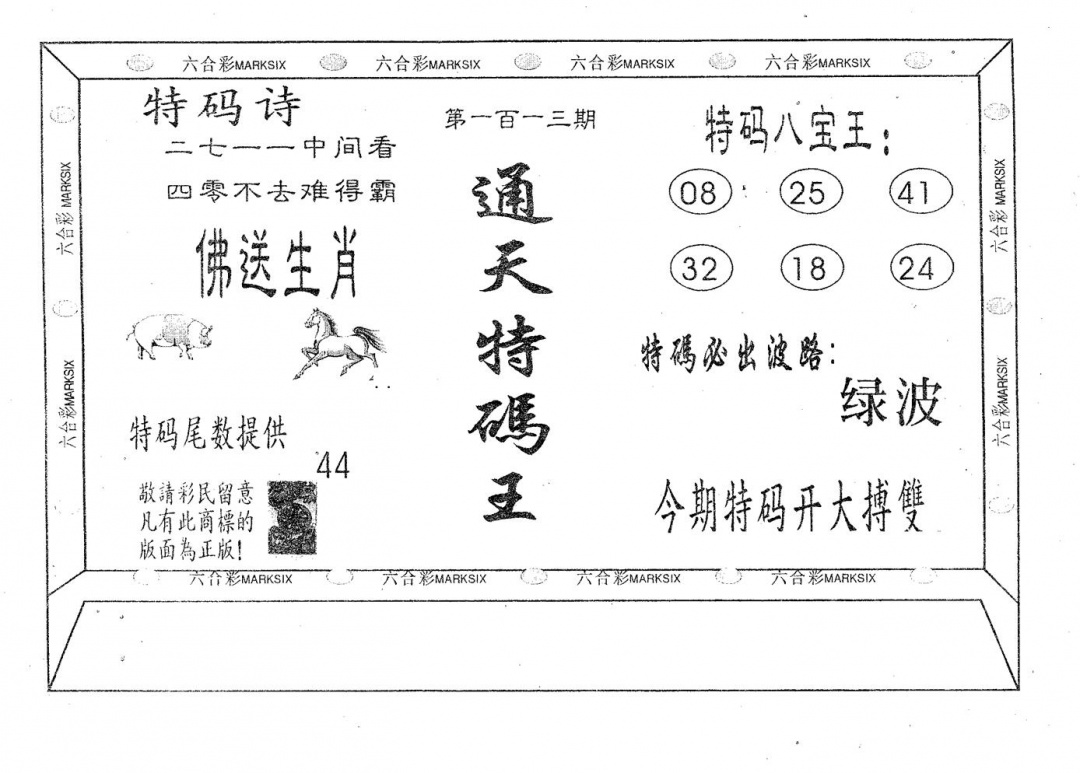 六合彩MARKSIX 六合彩MARKSIX 六合彩MARKSIX 六合彩MARKSIX
六合彩 MARKSIX
六合彩MARKSIX
特码诗
二七一一中间看
四零不去难得霸
佛送生肖
特码尾数提供
44
敬請彩民留意
凡有此商標的
版面為正版!
第一百一十三期
通天特碼王
特码八宝王:
08 25 41
32 18 24
特碼必出波路:
绿波
今期特码开大搏雙
六合彩 MARKSIX
六合彩MARKSIX
六合彩MARKSIX 六合彩MARKSIX 六合彩MARKSIX 六合彩MARKSIX